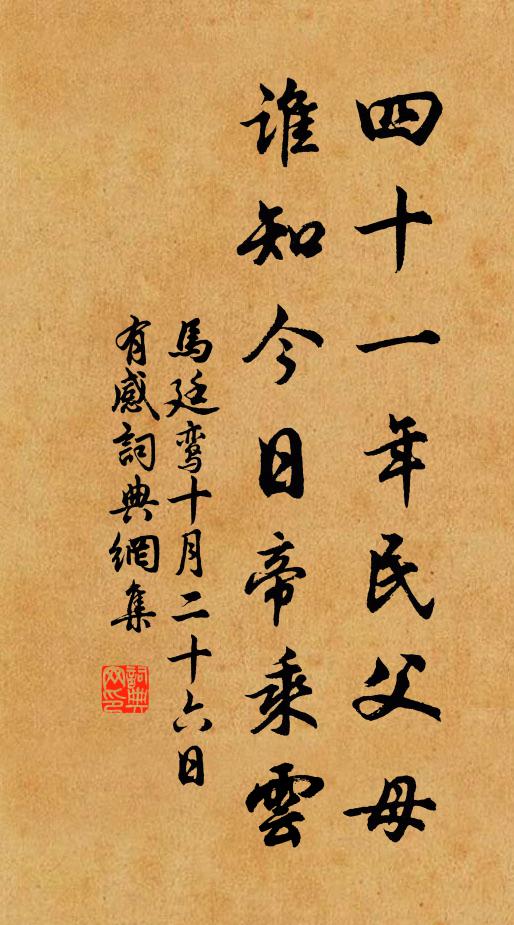 四十一年民父母
誰知今日帝乘雲
馬廷鸞十月二十六日
有感詞典網集
詞典網印